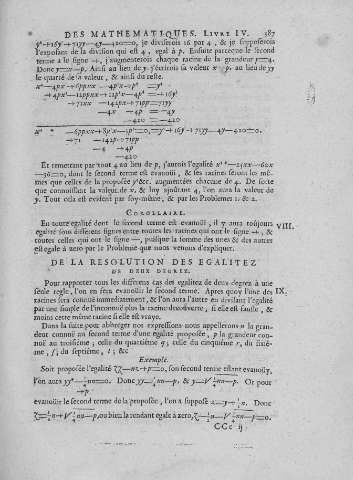 DES MATHEMATIQUES. LIVRE IV. 387
y⁴+16y³+71yy—4y—420=0, je diviserois 16 par 4, & je supposerois
l'exposant de la division qui est 4, egal à p. Ensuite parceque le second
terme a le signe +, j'augmenterois chaque racine de la grandeur p=4.
Donc y=x—p. Ainsi au lieu de y j'écrirois sa valeur x—p, au lieu de yy
le quarré de sa valeur, & ainsi du reste.
x⁴—4px³+6ppxx—4p³x+p⁴
+4px³—12ppxx+12p³x—4p⁴
+71xx—142px+71pp
—4x+4p
—420
x⁴ * —6ppxx+8p³x—3p⁴=0
+71 —142p+71pp
—4 +4p
—420
Et remettant par tout 4 au lieu de p, j'aurois l'egalité x⁴*—25xx—60x
—36=0, dont le second terme est evanoüi, & les racines seront les mê-
mes que celles de la proposée y⁴&c. augmentées chacune de 4. De sorte
que connoissant la valeur de x, & luy ajoûtant 4, l'on aura la valeur de
y. Tout cela est evident par soy-même, & par les Problemes 1. & 2.
COROLLAIRE.
En toute egalité dont le second terme est evanoüi, il y aura toujours VIII.
egalité sous differens signes entre toutes les racines qui ont le signe +, &
toutes celles qui ont le signe —, puisque la somme des unes & des autres
est egale à zero par le Problême que nous venons d'expliquer.
DE LA RESOLUTION DES EGALITEZ
DE DEUX DEGREZ.
Pour rapporter tous les differens cas des egalitez de deux degrez à une
seule regle, l'on en fera evanoüir le second terme. Apres quoy l'une des IX.
racines sera connuë immediatement, & l'on aura l'autre en divisant l'egalité
par une simple de l'inconnuë plus la racine decouverte, si elle est fausse, &
moins cette même racine si elle est vraye.
Dans la suite pour abbreger nos expressions nous appellerons n la gran-
deur connuë au second terme d'une egalité proposée, p la grandeur con-
nuë au troisiéme; celle du quatriéme q; celle du cinquiéme r, du sixié-
me, s; du septiéme, t; &c
Exemple.
Soit proposée l'egalité zz—nz+p=0, son second terme estant evanoüy,
l'on aura yy*—¼nn=0. Donc yy=¼nn—p, & y=√¼nn—p. Or pour
+p
evanoüir le second terme de la proposée, l'on a supposé z=y+½n. Donc
z=½n+√¼nn—p, ou bien la rendant egale à zero, z—½n—√¼nn—p=0.
CCc ij